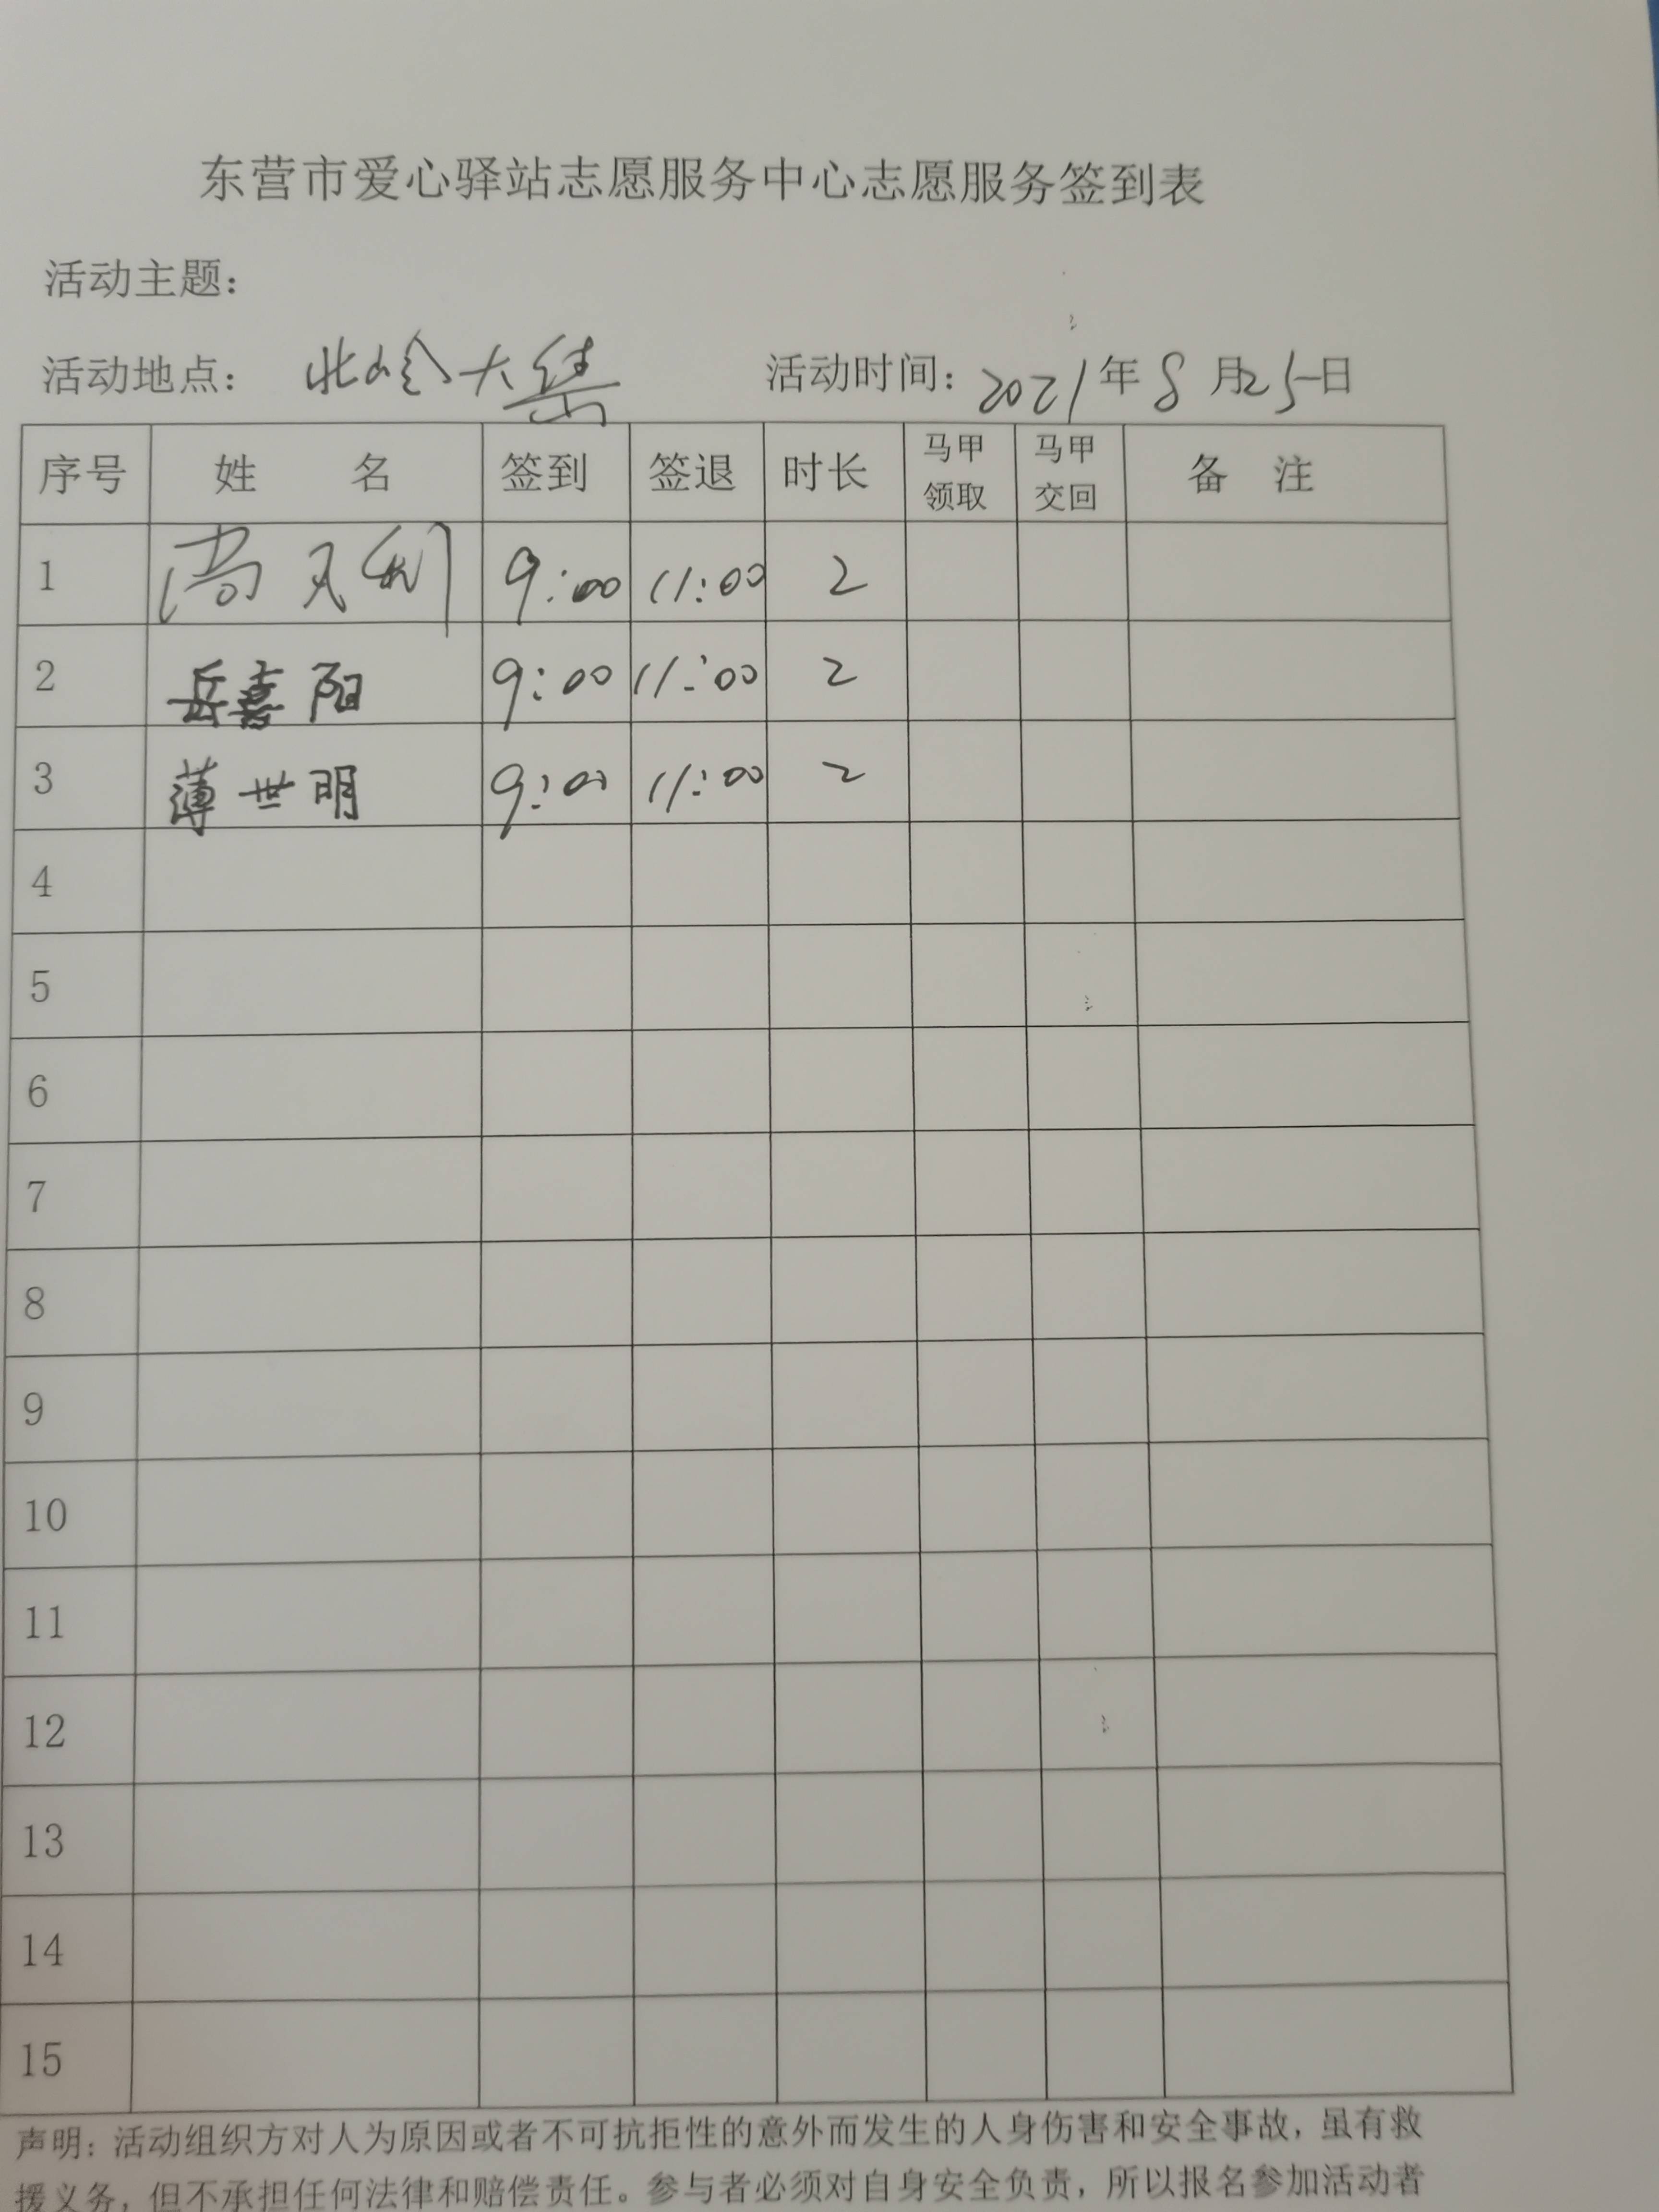 东营市爱心驿站志愿服务中心志愿服务签到表
活动主题：
活动地点： 北岭大集 活动时间：2021年8月25日
序号 姓 名 签到 签退 时长 马甲领取 马甲交回 备 注
1 尚 9:00 11:00 2
2 岳喜阳 9:00 11:00 2
3 薄世明 9:00 11:00 2
4
5
6
7
8
9
10
11
12
13
14
15
声明：活动组织方对人为原因或者不可抗拒性的意外而发生的人身伤害和安全事故，虽有救
援义务，但不承担任何法律和赔偿责任。参与者必须对自身安全负责，所以报名参加活动者